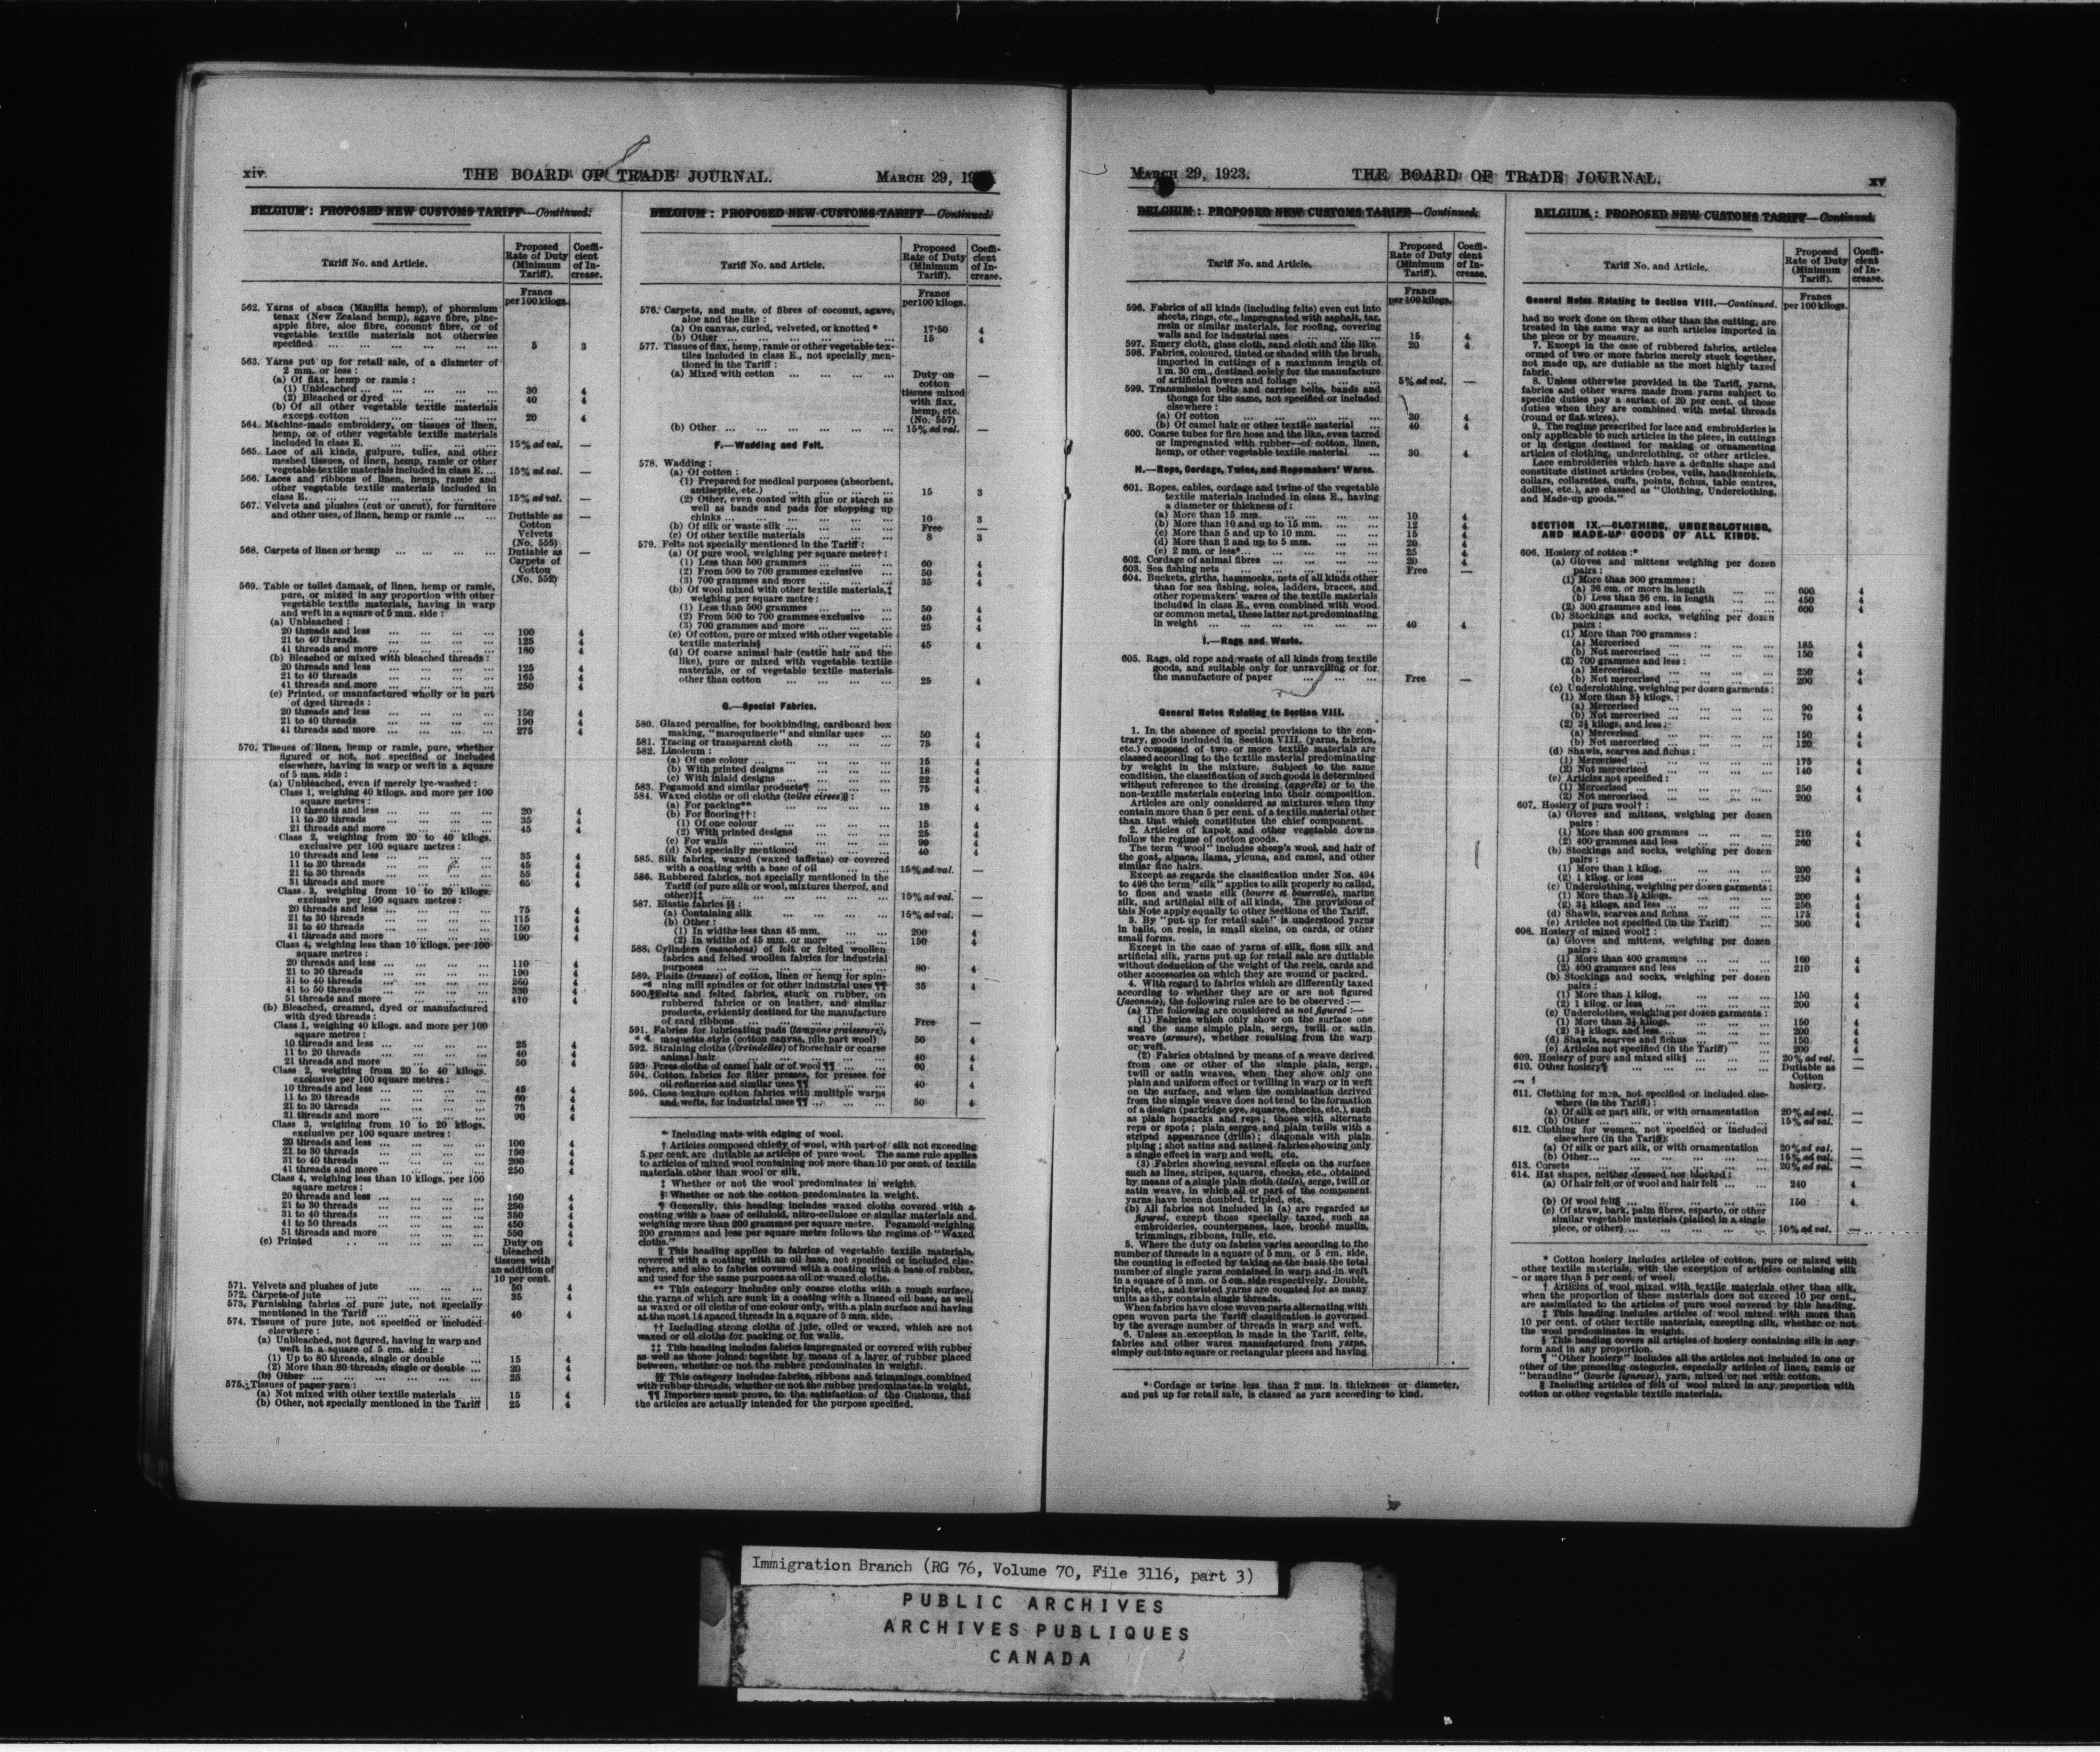 xiv.
THE BOARD OF TRADE JOURNAL.
MARCH 29,
BELGIUM: PROPOSED NEW CUSTOMS TARIFF—Continued.
Tariff No. and Article.
Proposed Rate of Duty (Minimum Tariff).
Coefficient of Increase.
Francs per 100 kilogs.
562. Yarns of abaca (Manilla hemp), of phormium
tenax (New Zealand hemp), agave fibre, pine-
apple fibre, aloe fibre, coconut fibre, or of
vegetable textile materials not otherwise
specified ... 5 3
563. Yarns put up for retail sale, of a diameter of
2 mm. or less :
(a) Of flax, hemp or ramie :
(1) Unbleached ... 30 4
(2) Bleached or dyed ... 40 4
(b) Of all other vegetable textile materials
except cotton ... 20 4
564. Machine-made embroidery, on tissues of linen,
hemp, or of other vegetable textile materials
included in class E. ... 15% ad val. —
565. Lace of all kinds, guipure, tulles, and other
meshed tissues, of linen, hemp, ramie or other
vegetable textile materials included in class E. ... 15% ad val. —
566. Laces and ribbons of linen, hemp, ramie and
other vegetable textile materials included in
class E. ... 15% ad val. —
567. Velvets and plushes (cut or uncut), for furniture
and other uses, of linen, hemp or ramie ... Dutiable as —
Cotton
Velvets
(No. 555)
568. Carpets of linen or hemp ... Dutiable as —
Carpets of
Cotton
(No. 552)
569. Table or toilet damask, of linen, hemp or ramie,
pure, or mixed in any proportion with other
vegetable textile materials, having in warp
and weft in a square of 5 mm. side :
(a) Unbleached :
20 threads and less ... 100 4
21 to 40 threads ... 125 4
41 threads and more ... 180 4
(b) Bleached or mixed with bleached threads :
20 threads and less ... 125 4
21 to 40 threads ... 165 4
41 threads and more ... 250 4
(c) Printed, or manufactured wholly or in part
of dyed threads :
20 threads and less ... 150 4
21 to 40 threads ... 190 4
41 threads and more ... 275 4
570. Tissues of linen, hemp or ramie, pure, whether
figured or not, not specified or included
elsewhere, having in warp or weft in a square
of 5 mm. side :
(a) Unbleached, even if merely lye-washed :
Class 1, weighing 40 kilogs. and more per 100
square metres :
10 threads and less ... 20 4
11 to 20 threads ... 35 4
21 threads and more ... 45 4
Class 2, weighing from 20 to 40 kilogs.
exclusive per 100 square metres :
10 threads and less ... 35 4
11 to 20 threads ... 45 4
21 to 30 threads ... 55 4
31 threads and more ... 65 4
Class 3, weighing from 10 to 20 kilogs.
exclusive per 100 square metres :
20 threads and less ... 75 4
21 to 30 threads ... 115 4
31 to 40 threads ... 150 4
41 threads and more ... 190 4
Class 4, weighing less than 10 kilogs. per 100
square metres :
20 threads and less ... 110 4
21 to 30 threads ... 190 4
31 to 40 threads ... 260 4
41 to 50 threads ... 330 4
51 threads and more ... 410 4
(b) Bleached, creamed, dyed or manufactured
with dyed threads :
Class 1, weighing 40 kilogs. and more per 100
square metres :
10 threads and less ... 25 4
11 to 20 threads ... 40 4
21 threads and more ... 50 4
Class 2, weighing from 20 to 40 kilogs.
exclusive per 100 square metres :
10 threads and less ... 45 4
11 to 20 threads ... 60 4
21 to 30 threads ... 75 4
31 threads and more ... 90 4
Class 3, weighing from 10 to 20 kilogs.
exclusive per 100 square metres :
20 threads and less ... 100 4
21 to 30 threads ... 150 4
31 to 40 threads ... 200 4
41 threads and more ... 250 4
Class 4, weighing less than 10 kilogs. per 100
square metres :
20 threads and less ... 150 4
21 to 30 threads ... 250 4
31 to 40 threads ... 350 4
41 to 50 threads ... 450 4
51 threads and more ... 550 4
(c) Printed ... Duty on 4
bleached
tissues with
an addition of
10 per cent.
571. Velvets and plushes of jute ... 50 4
572. Carpets of jute ... 35 4
573. Furnishing fabrics of pure jute, not specially
mentioned in the Tariff ... 40 4
574. Tissues of pure jute, not specified or included
elsewhere :
(a) Unbleached, not figured, having in warp and
weft in a square of 5 cm. side :
(1) Up to 80 threads, single or double ... 15 4
(2) More than 80 threads, single or double ... 20 4
(b) Other ... 25 4
575. Tissues of paper yarn :
(a) Not mixed with other textile materials ... 15 4
(b) Other, not specially mentioned in the Tariff 25 4
BELGIUM: PROPOSED NEW CUSTOMS TARIFF—Continued.
Tariff No. and Article.
Proposed Rate of Duty (Minimum Tariff).
Coefficient of Increase.
Francs per 100 kilogs.
576. Carpets, and mats, of fibres of coconut, agave,
aloe and the like :
(a) On canvas, curled, velveted, or knotted * 17·50 4
(b) Other ... 15 4
577. Tissues of flax, hemp, ramie or other vegetable tex-
tiles included in class E., not specially men-
tioned in the Tariff :
(a) Mixed with cotton ... Duty on —
cotton
tissues mixed
with flax,
hemp, etc.
(No. 557)
(b) Other ... 15% ad val. —
F.—Wadding and Felt.
578. Wadding :
(a) Of cotton :
(1) Prepared for medical purposes (absorbent,
antiseptic, etc.) ... 15 3
(2) Other, even coated with glue or starch as
well as bands and pads for stopping up
chinks ... 10 3
(b) Of silk or waste silk ... Free —
(c) Of other textile materials ... 8 3
579. Felts not specially mentioned in the Tariff :
(a) Of pure wool, weighing per square metre† :
(1) Less than 500 grammes ... 60 4
(2) From 500 to 700 grammes exclusive ... 50 4
(3) 700 grammes and more ... 35 4
(b) Of wool mixed with other textile materials,‡
weighing per square metre :
(1) Less than 500 grammes ... 50 4
(2) From 500 to 700 grammes exclusive ... 40 4
(3) 700 grammes and more ... 25 4
(c) Of cotton, pure or mixed with other vegetable
textile materials§ ... 45 4
(d) Of coarse animal hair (cattle hair and the
like), pure or mixed with vegetable textile
materials, or of vegetable textile materials
other than cotton ... 25 4
G.—Special Fabrics.
580. Glazed percaline, for bookbinding, cardboard box
making, "maroquinerie" and similar uses ... 50 4
581. Tracing or transparent cloth ... 75 4
582. Linoleum :
(a) Of one colour ... 15 4
(b) With printed designs ... 18 4
(c) With inlaid designs ... 22 4
583. Pegamoid and similar products¶ ... 75 4
584. Waxed cloths or oil cloths (toiles cirees)‖ :
(a) For packing** ... 18 4
(b) For flooring†† :
(1) Of one colour ... 15 4
(2) With printed designs ... 25 4
(c) For walls ... 90 4
(d) Not specially mentioned ... 40 4
585. Silk fabrics, waxed (waxed taffetas) or covered
with a coating with a base of oil ... 15% ad val. —
586. Rubbered fabrics, not specially mentioned in the
Tariff (of pure silk or wool, mixtures thereof, and
other)‡‡ ... 15% ad val. —
587. Elastic fabrics §§ :
(a) Containing silk ... 15% ad val. —
(b) Other :
(1) In widths less than 45 mm. ... 200 4
(2) In widths of 45 mm. or more ... 150 4
588. Cylinders (manchons) of felt or felted woollen
fabrics and felted woollen fabrics for industrial
purposes ... 80 4
589. Plaits (tresses) of cotton, linen or hemp for spin-
ning mill spindles or for other industrial uses ¶¶ 35 4
590.¶Felts and felted fabrics, stuck on rubber, on
rubbered fabrics or on leather, and similar
products, evidently destined for the manufacture
of card ribbons ... Free —
591. Fabrics for lubricating pads (tampons graisseurs),
moquette style (cotton canvas, pile part wool) 50 4
592. Straining cloths (étreindelles) of horsehair or coarse
animal hair ... 40 4
593. Press cloths of camel hair or of wool ¶¶ ... 60 4
594. Cotton fabrics for filter presses, for presses for
oil refineries and similar uses ¶¶ ... 40 4
595. Close texture cotton fabrics with multiple warps
and wefts, for industrial uses ¶¶ ... 50 4
* Including mats with edging of wool.
† Articles composed chiefly of wool, with part of silk not exceeding
5 per cent. are dutiable as articles of pure wool. The same rule applies
to articles of mixed wool containing not more than 10 per cent. of textile
materials other than wool or silk.
‡ Whether or not the wool predominates in weight.
§ Whether or not the cotton predominates in weight.
¶ Generally, this heading includes waxed cloths covered with a
coating with a base of celluloid, nitro-cellulose or similar materials and
weighing more than 200 grammes per square metre. Pegamoid weighing
200 grammes and less per square metre follows the regime of "Waxed
cloths."
‖ This heading applies to fabrics of vegetable textile materials,
covered with a coating with an oil base, not specified or included else-
where, and also to fabrics covered with a coating with a base of rubber,
and used for the same purposes as oil or waxed cloths.
** This category includes only coarse cloths with a rough surface,
the yarns of which are sunk in a coating with a linseed oil base, as well
as waxed or oil cloths of one colour only, with a plain surface and having
at the most 14 spaced threads in a square of 5 mm. side.
†† Including strong cloths of jute, oiled or waxed, which are not
waxed or oil cloths for packing or for walls.
‡‡ This heading includes fabrics impregnated or covered with rubber
as well as those joined together by means of a layer of rubber placed
between, whether or not the rubber predominates in weight.
§§ This category includes fabrics, ribbons and trimmings combined
with rubber threads, whether or not the rubber predominates in weight.
¶¶ Importers must prove, to the satisfaction of the Customs, that
the articles are actually intended for the purpose specified.
MARCH 29, 1923.
THE BOARD OF TRADE JOURNAL.
xv
BELGIUM: PROPOSED NEW CUSTOMS TARIFF—Continued.
Tariff No. and Article.
Proposed Rate of Duty (Minimum Tariff).
Coefficient of Increase.
Francs per 100 kilogs.
596. Fabrics of all kinds (including felts) even cut into
sheets, rings, etc., impregnated with asphalt, tar,
resin or similar materials, for roofing, covering
walls and for industrial uses ... 15 4
597. Emery cloth, glass cloth, sand cloth and the like 20 4
598. Fabrics, coloured, tinted or shaded with the brush,
imported in cuttings of a maximum length of
1 m. 30 cm., destined solely for the manufacture
of artificial flowers and foliage ... 5% ad val. —
599. Transmission belts and carrier belts, bands and
thongs for the same, not specified or included
elsewhere :
(a) Of cotton ... 30 4
(b) Of camel hair or other textile material ... 40 4
600. Coarse tubes for fire hose and the like, even tarred
or impregnated with rubber—of cotton, linen,
hemp, or other vegetable textile material ... 30 4
H.—Rope, Cordage, Twine, and Ropemakers' Wares.
601. Ropes, cables, cordage and twine of the vegetable
textile materials included in class E., having
a diameter or thickness of :
(a) More than 15 mm. ... 10 4
(b) More than 10 and up to 15 mm. ... 12 4
(c) More than 5 and up to 10 mm. ... 15 4
(d) More than 2 and up to 5 mm. ... 20 4
(e) 2 mm. or less* ... 25 4
602. Cordage of animal fibres ... 20 4
603. Sea fishing nets ... Free —
604. Buckets, girths, hammocks, nets of all kinds other
than for sea fishing, soles, ladders, braces, and
other ropemakers' wares of the textile materials
included in class E., even combined with wood
or common metal, these latter not predominating
in weight ... 40 4
I.—Rags and Waste.
605. Rags, old rope and waste of all kinds from textile
goods, and suitable only for unravelling or for
the manufacture of paper ... Free —
General Notes Relating to Section VIII.
1. In the absence of special provisions to the con-
trary, goods included in Section VIII. (yarns, fabrics,
etc.) composed of two or more textile materials are
classed according to the textile material predominating
by weight in the mixture. Subject to the same
condition, the classification of such goods is determined
without reference to the dressing (apprêts) or to the
non-textile materials entering into their composition.
Articles are only considered as mixtures when they
contain more than 5 per cent. of a textile material other
than that which constitutes the chief component.
2. Articles of kapok and other vegetable downs
follow the regime of cotton goods.
The term "wool" includes sheep's wool, and hair of
the goat, alpaca, llama, vicuna, and camel, and other
similar fine hairs.
Except as regards the classification under Nos. 494
to 498 the term "silk" applies to silk properly so called,
to floss and waste silk (bourre et bourrette), marine
silk, and artificial silk of all kinds. The provisions of
this Note apply equally to other Sections of the Tariff.
3. By "put up for retail sale" is understood yarns
in balls, on reels, in small skeins, on cards, or other
small forms.
Except in the case of yarns of silk, floss silk and
artificial silk, yarns put up for retail sale are dutiable
without deduction of the weight of the reels, cards and
other accessories on which they are wound or packed.
4. With regard to fabrics which are differently taxed
according to whether they are or are not figured
(façonnés), the following rules are to be observed :—
(a) The following are considered as not figured :—
(1) Fabrics which only show on the surface one
and the same simple plain, serge, twill or satin
weave (armure), whether resulting from the warp
or weft.
(2) Fabrics obtained by means of a weave derived
from one or other of the simple plain, serge,
twill or satin weaves, when they show only one
plain and uniform effect or twilling in warp or in weft
on the surface, and when the combination derived
from the simple weave does not tend to the formation
of a design (partridge eye, squares, checks, etc.), such
as plain hopsacks and reps; those with alternate
reps or spots; plain serges and plain twills with a
striped appearance (drills); diagonals with plain
piping; shot satins and satined fabrics showing only
a single effect in warp and weft, etc.
(3) Fabrics showing several effects on the surface
such as lines, stripes, squares, checks, etc., obtained
by means of a single plain cloth (toile), serge, twill or
satin weave, in which all or part of the component
yarns have been doubled, tripled, etc.
(b) All fabrics not included in (a) are regarded as
figured, except those specially taxed, such as
embroideries, counterpanes, lace, broché muslin,
trimmings, ribbons, tulle, etc.
5. Where the duty on fabrics varies according to the
number of threads in a square of 5 mm. or 5 cm. side,
the counting is effected by taking as the basis the total
number of single yarns contained in warp and in weft
in a square of 5 mm. or 5 cm. side respectively. Double,
triple, etc., and twisted yarns are counted for as many
units as they contain single threads.
When fabrics have close woven parts alternating with
open woven parts the Tariff classification is governed
by the average number of threads in warp and weft.
6. Unless an exception is made in the Tariff, felts,
fabrics and other wares manufactured from yarns,
simply cut into square or rectangular pieces and having
* Cordage or twine less than 2 mm. in thickness or diameter,
and put up for retail sale, is classed as yarn according to kind.
BELGIUM: PROPOSED NEW CUSTOMS TARIFF—Continued.
Tariff No. and Article.
Proposed Rate of Duty (Minimum Tariff).
Coefficient of Increase.
Francs per 100 kilogs.
General Notes Relating to Section VIII.—Continued.
had no work done on them other than the cutting, are
treated in the same way as such articles imported in
the piece or by measure.
7. Except in the case of rubbered fabrics, articles
ormed of two or more fabrics merely stuck together,
not made up, are dutiable as the most highly taxed
fabric.
8. Unless otherwise provided in the Tariff, yarns,
fabrics and other wares made from yarns subject to
specific duties pay a surtax of 20 per cent. of those
duties when they are combined with metal threads
(round or flat wires).
9. The regime prescribed for lace and embroideries is
only applicable to such articles in the piece, in cuttings
or in designs destined for making or ornamenting
articles of clothing, underclothing, or other articles.
Lace embroideries which have a definite shape and
constitute distinct articles (robes, veils, handkerchiefs,
collars, collarettes, cuffs, points, fichus, table centres,
doilies, etc.), are classed as "Clothing, Underclothing,
and Made-up goods."
SECTION IX.—CLOTHING, UNDERCLOTHING,
AND MADE-UP GOODS OF ALL KINDS.
606. Hosiery of cotton :*
(a) Gloves and mittens weighing per dozen
pairs :
(1) More than 300 grammes :
(a) 36 cm. or more in length ... 600 4
(b) Less than 36 cm. in length ... 450 4
(2) 300 grammes and less ... 600 4
(b) Stockings and socks, weighing per dozen
pairs :
(1) More than 700 grammes :
(a) Mercerised ... 185 4
(b) Not mercerised ... 150 4
(2) 700 grammes and less :
(a) Mercerised ... 250 4
(b) Not mercerised ... 200 4
(c) Underclothing, weighing per dozen garments :
(1) More than 3½ kilogs. :
(a) Mercerised ... 90 4
(b) Not mercerised ... 70 4
(2) 3½ kilogs. and less :
(a) Mercerised ... 150 4
(b) Not mercerised ... 120 4
(d) Shawls, scarves and fichus :
(1) Mercerised ... 175 4
(2) Not mercerised ... 140 4
(e) Articles not specified :
(1) Mercerised ... 250 4
(2) Not mercerised ... 200 4
607. Hosiery of pure wool† :
(a) Gloves and mittens, weighing per dozen
pairs :
(1) More than 400 grammes ... 210 4
(2) 400 grammes and less ... 260 4
(b) Stockings and socks, weighing per dozen
pairs :
(1) More than 1 kilog. ... 200 4
(2) 1 kilog. or less ... 250 4
(c) Underclothing, weighing per dozen garments :
(1) More than 3½ kilogs. ... 200 4
(2) 3½ kilogs. and less ... 250 4
(d) Shawls, scarves and fichus ... 175 4
(e) Articles not specified (in the Tariff) ... 300 4
608. Hosiery of mixed wool‡ :
(a) Gloves and mittens, weighing per dozen
pairs :
(1) More than 400 grammes ... 160 4
(2) 400 grammes and less ... 210 4
(b) Stockings and socks, weighing per dozen
pairs :
(1) More than 1 kilog. ... 150 4
(2) 1 kilog. or less ... 200 4
(c) Underclothes, weighing per dozen garments :
(1) More than 3½ kilogs. ... 150 4
(2) 3½ kilogs. and less ... 200 4
(d) Shawls, scarves and fichus ... 150 4
(e) Articles not specified (in the Tariff) ... 200 4
609. Hosiery of pure and mixed silk§ ... 20% ad val. —
610. Other hosiery¶ ... Dutiable as —
Cotton
hosiery.
611. Clothing for men, not specified or included else-
where (in the Tariff) :
(a) Of silk or part silk, or with ornamentation 20% ad val. —
(b) Other ... 15% ad val. —
612. Clothing for women, not specified or included
elsewhere (in the Tariff):
(a) Of silk or part silk, or with ornamentation 20% ad val. —
(b) Other ... 15% ad val. —
613. Corsets ... 20% ad val. —
614. Hat shapes, neither dressed nor blocked :
(a) Of hair felt or of wool and hair felt ... 240 4
(b) Of wool felt‖ ... 150 4
(c) Of straw, bark, palm fibres, esparto, or other
similar vegetable materials (plaited in a single
piece, or other) ... 10% ad val. —
* Cotton hosiery includes articles of cotton, pure or mixed with
other textile materials, with the exception of articles containing silk
or more than 5 per cent. of wool.
† Articles of wool mixed with textile materials other than silk,
when the proportion of these materials does not exceed 10 per cent.,
are assimilated to the articles of pure wool covered by this heading.
‡ This heading includes articles of wool mixed with more than
10 per cent. of other textile materials, excepting silk, whether or not
the wool predominates in weight.
§ This heading covers all articles of hosiery containing silk in any
form and in any proportion.
¶ "Other hosiery" includes all the articles not included in one or
other of the preceding categories, especially articles of linen, ramie or
"berandine" (tourbe ligneuse), yarn, mixed or not with cotton.
‖ Including articles of felt of wool mixed in any proportion with
cotton or other vegetable textile materials.
Immigration Branch (RG 76, Volume 70, File 3116, part 3)
PUBLIC ARCHIVES
ARCHIVES PUBLIQUES
CANADA